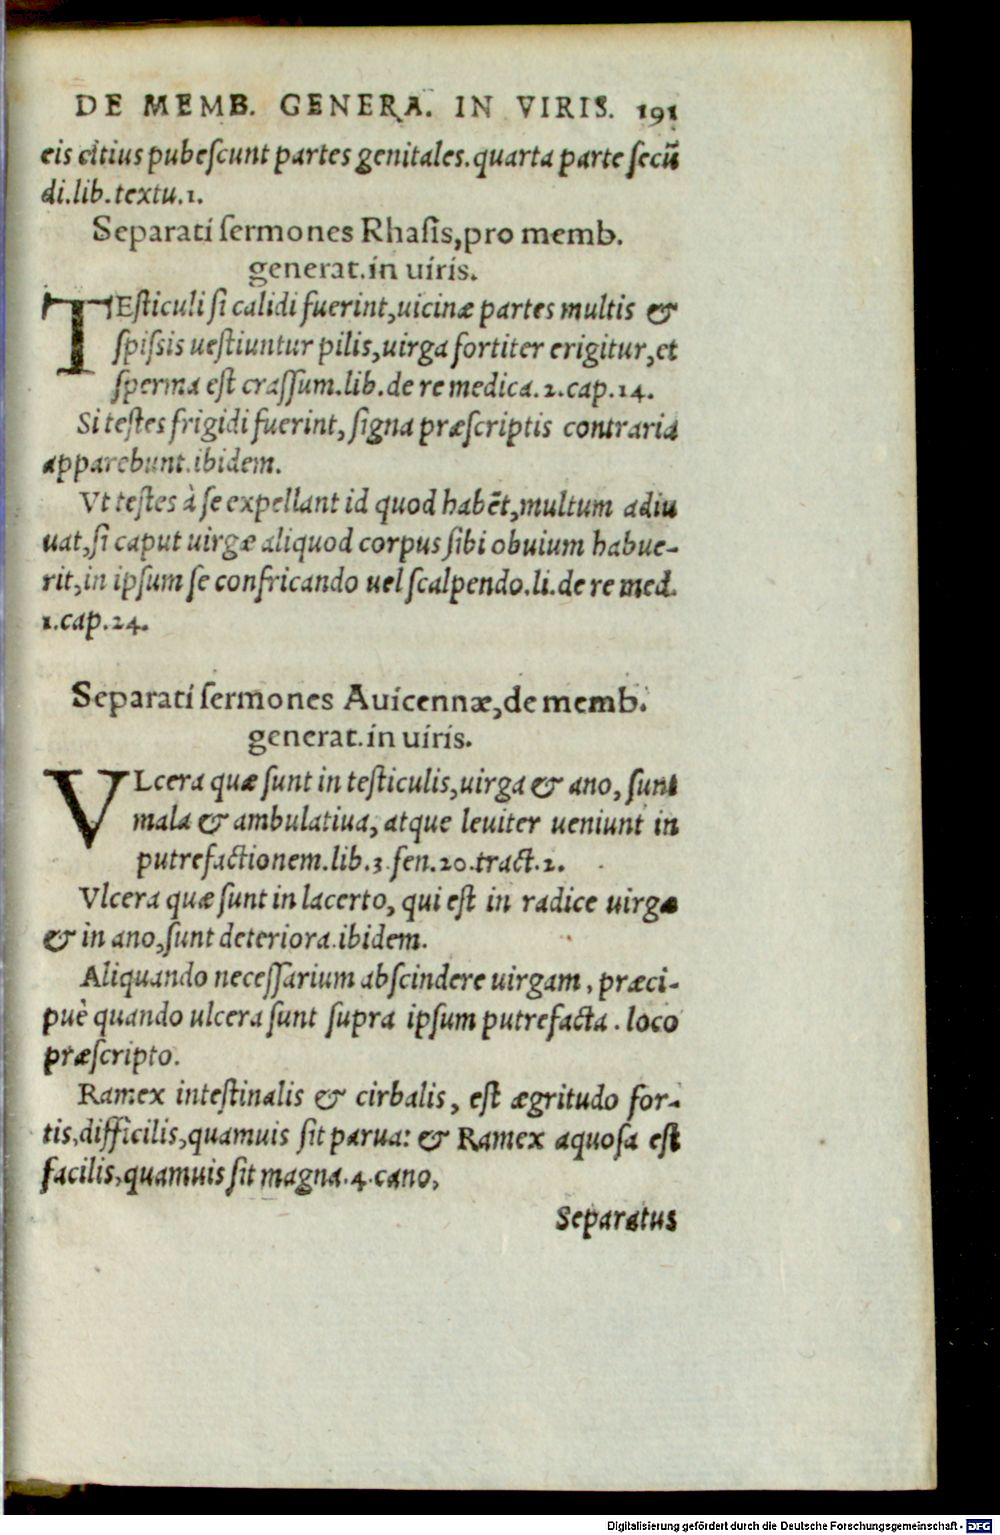 DE MEMB. GENERA. IN VIRIS. 191
eis citius pubeſcunt partes genitales.quarta parte ſecū
di.lib.textu.1.
Separati ſermones Rhaſis,pro memb.
generat.in uiris.
TEſticuli ſi calidi fuerint,uicinæ partes multis &
ſpiſsis ueſtiuntur pilis,uirga fortiter erigitur,et
ſperma eſt craſſum.lib.de re medica.2.cap.14.
Si teſtes frigidi fuerint, ſigna præſcriptis contraria
apparebunt.ibidem.
Vt teſtes à ſe expellant id quod habēt,multum adiu
uat,ſi caput uirgæ aliquod corpus ſibi obuium habue-
rit,in ipſum ſe confricando uel ſcalpendo.li.de re med.
1.cap.24.
Separati ſermones Auicennæ,de memb.
generat.in uiris.
VLcera quæ ſunt in teſticulis,uirga & ano, ſunt
mala & ambulatiua, atque leuiter ueniunt in
putrefactionem.lib.3.fen.20.tract.2.
Vlcera quæ ſunt in lacerto, qui eſt in radice uirgæ
& in ano,ſunt deteriora.ibidem.
Aliquando neceſſarium abſcindere uirgam, præci-
puè quando ulcera ſunt ſupra ipſum putrefacta. loco
præſcripto.
Ramex inteſtinalis & cirbalis, eſt ægritudo for-
tis,difficilis,quamuis ſit parua: & Ramex aquoſa eſt
facilis,quamuis ſit magna.4.cano,
Separatus
Digitalisierung gefördert durch die Deutsche Forschungsgemeinschaft - DFG